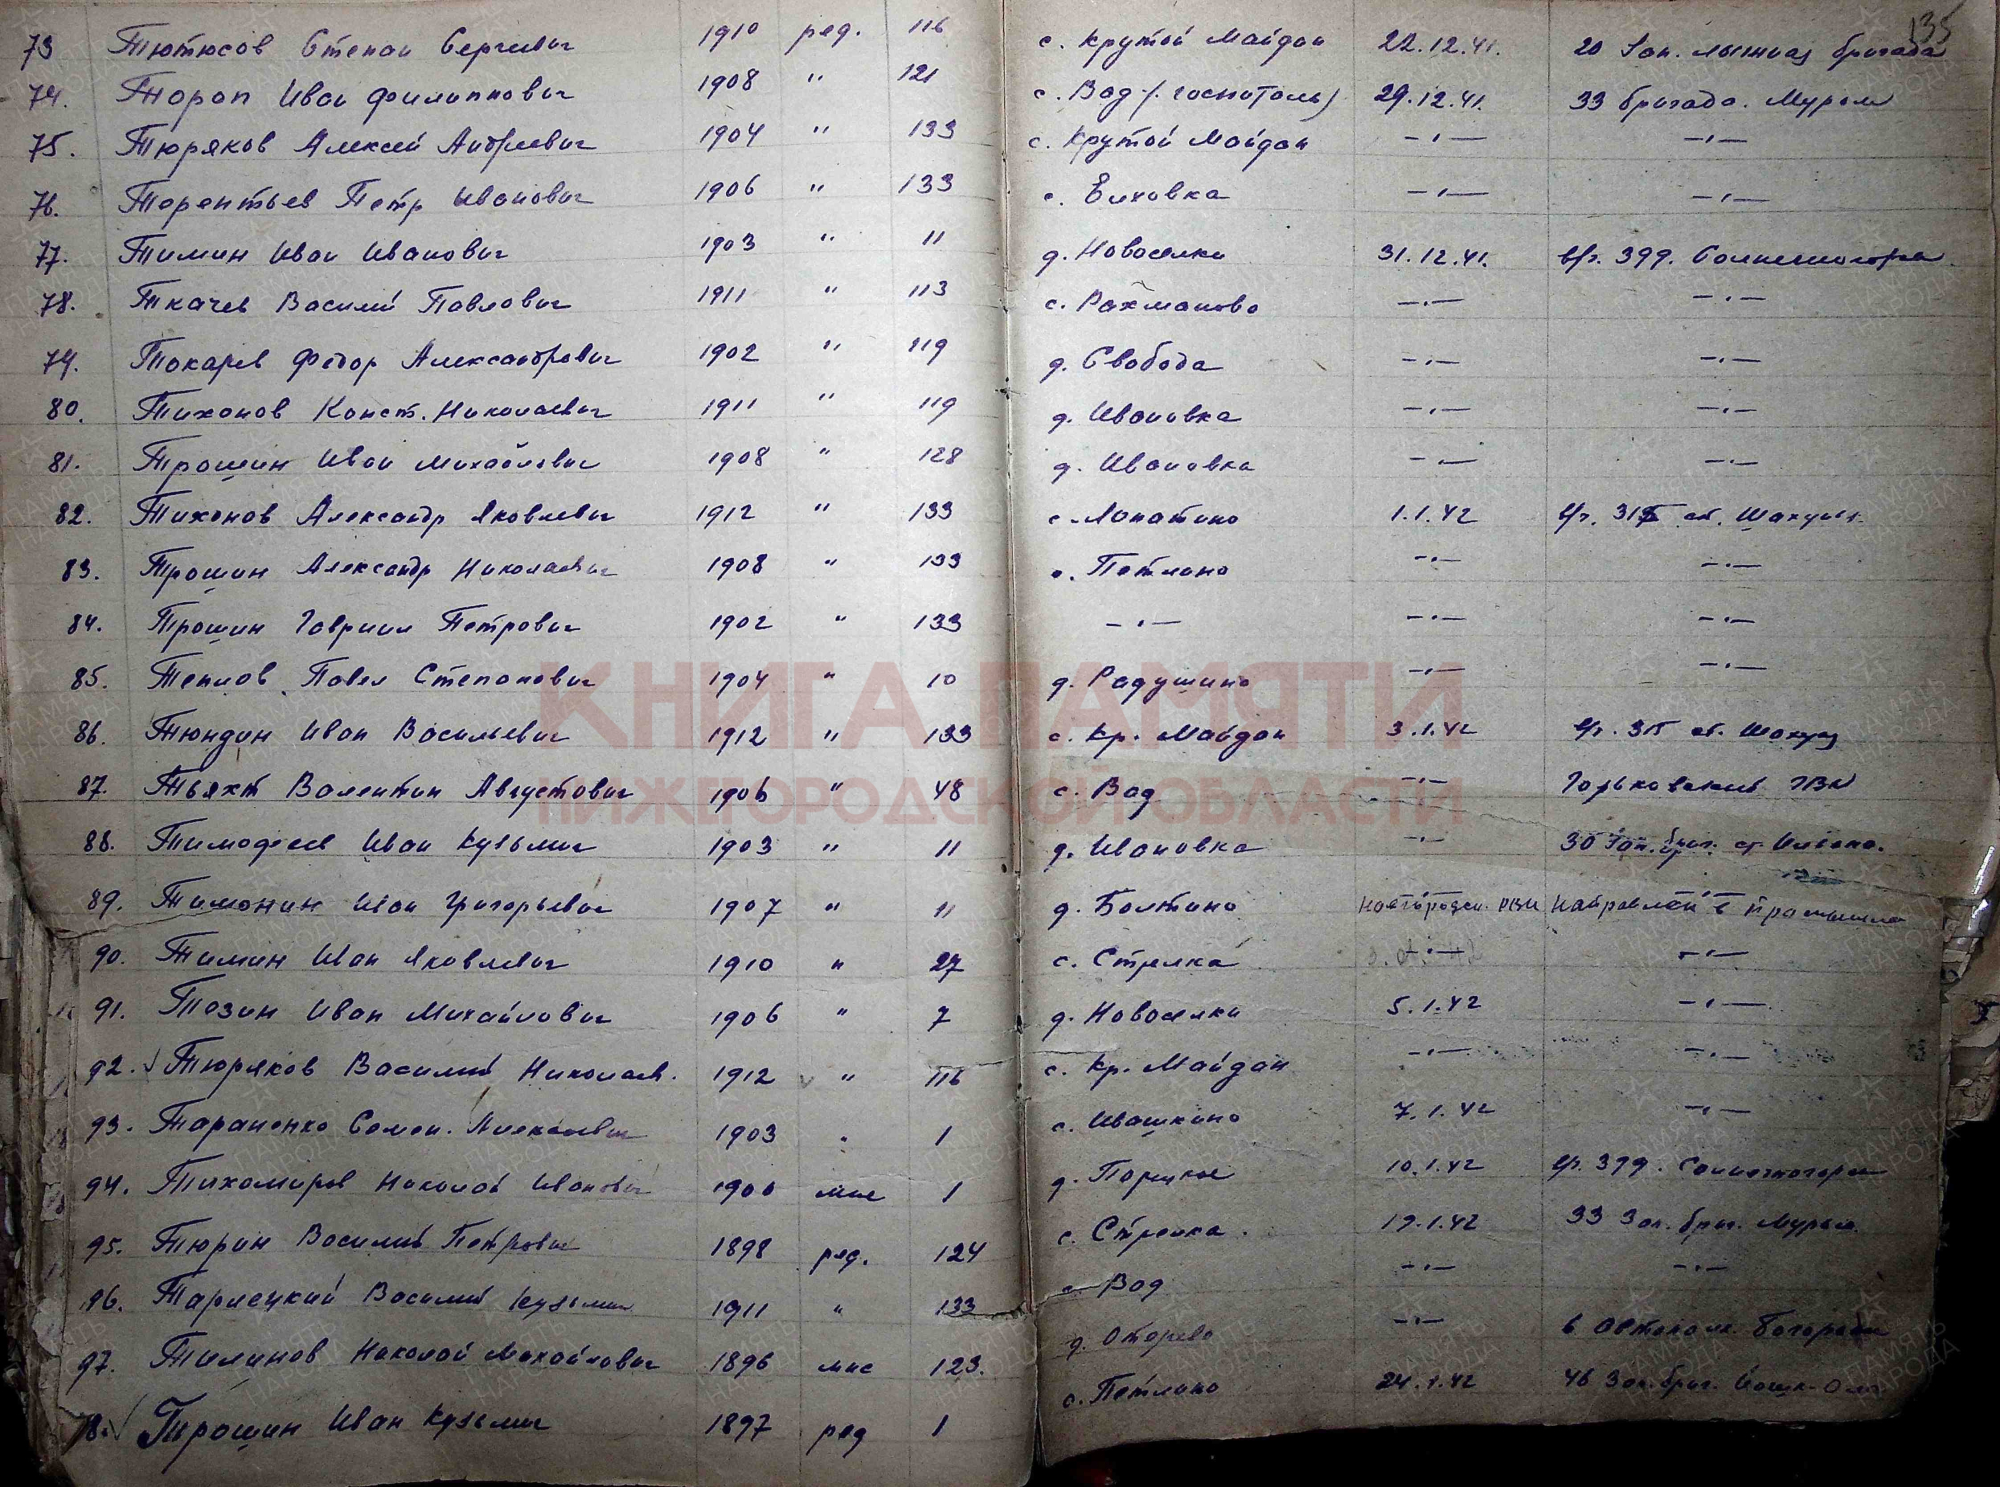 135
73 Тютюсов Степан Сергеевич 1910 ряд. 116 с. Крутой Майдан 22.12.41. 20 Зап. лыжная бригада
74. Тороп Иван Филиппович 1908 " 121 с. Вад (госпиталь) 29.12.41. 33 бригада. Муром
75. Тюряков Алексей Андреевич 1904 " 133 с. Крутой Майдан —„— —„—
76. Терентьев Петр Иванович 1906 " 133 с. Елховка —„— —„—
77. Тимин Иван Иванович 1903 " 11 д. Новоселки 31.12.41. в/ч. 399. Солнечногорск
78. Ткачев Василий Павлович 1911 " 113 с. Рахманово —„— —„—
79. Токарев Федор Александрович 1902 " 119 д. Свобода —„— —„—
80. Тихонов Конст. Николаевич 1911 " 119 д. Ивановка —„— —„—
81. Трошин Иван Михайлович 1908 " 128 д. Ивановка —„— —„—
82. Тихонов Александр Яковлевич 1912 " 133 с. Лопатино 1.1.42 в/ч. ст. Шахунья
83. Трошин Александр Николаевич 1908 " 133 с. Петлино —„— —„—
84. Трошин Гавриил Петрович 1902 " 133 —„— —„— —„—
85. Теплов Павел Степанович 1904 " 10 д. Радушино —„— —„—
86. Тюндин Иван Васильевич 1912 " 133 с. Кр. Майдан 3.1.42 в/ч. ст. Шахунья
87. Тьяхт Валентин Августович 1906 " 48 с. Вад —„— Горьковский ГВК
88. Тимофеев Иван Кузьмич 1903 " 11 д. Ивановка —„— 30 Зап. бриг. ст.
89. Тимонин Иван Григорьевич 1907 " 11 д. Болтино РВК направлен в
90. Тимин Иван Яковлевич 1910 " 27 с. Стрелка —„— —„—
91. Тезин Иван Михайлович 1906 " 7 д. Новоселки 5.1.42 —„—
92. Тюряков Василий Николаев. 1912 " 116 с. Кр. Майдан —„— —„—
93. Тараненко Семен. Алексеевич 1903 " 1 с. Ивашкино 7.1.42 —„—
94. Тихомиров Николай Иванович 1900 мл с 1 д. Порецкое 10.1.42 в/ч. 399. Солнечногорск
95. Тюрин Василий Петрович 1898 ряд. 124 с. Стрелка. 19.1.42 33 Зап. бриг. Муром
96. Тарлецкий Василий Кузьмич 1911 " 133 с. Вад —„— —„—
97. Тилинов Николай Михайлович 1896 млс 123. д. Отарево —„— в Автополк Богородск
98. Трошин Иван Кузьмич 1897 ряд 1 с. Петлино 24.1.42 46 Зап. бриг. Йошк-Ола
КНИГА ПАМЯТИ
НИЖЕГОРОДСКОЙ ОБЛАСТИ